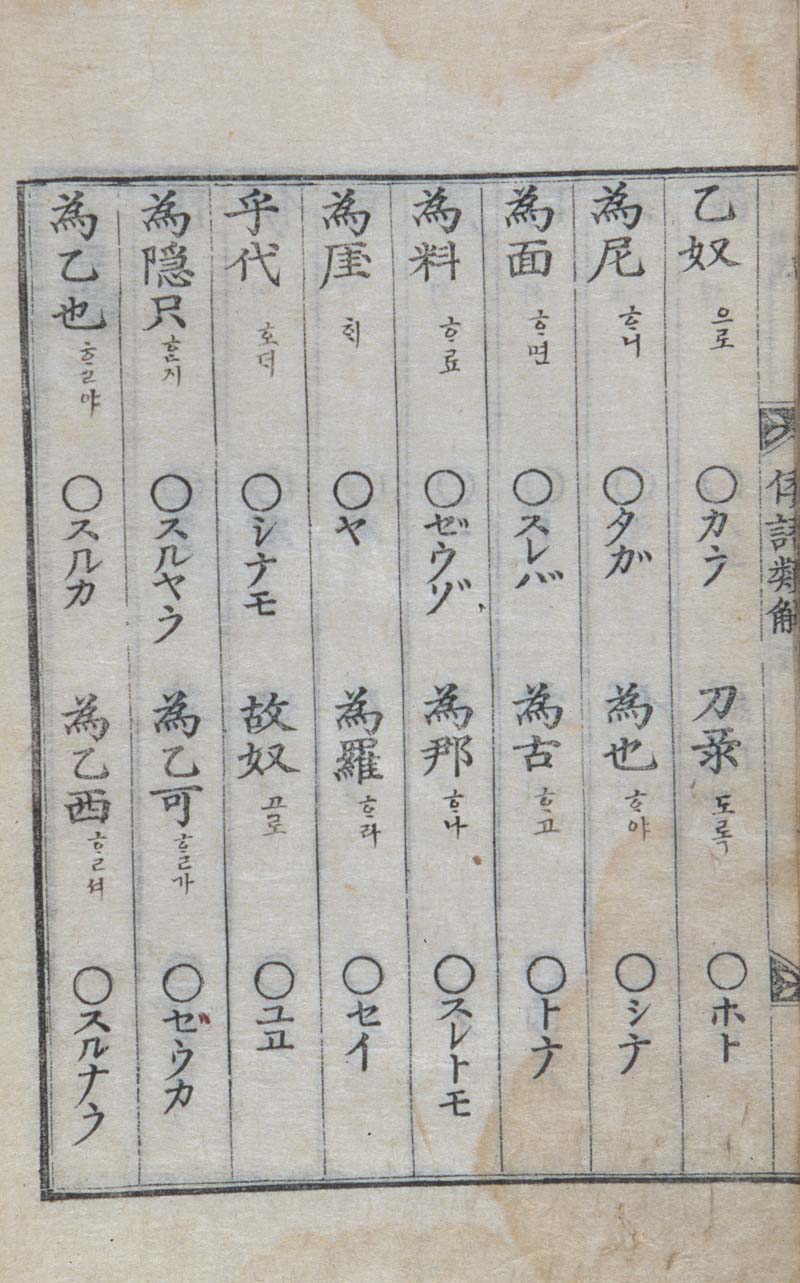 倭語類解
乙奴 으로 ○カラ 刀彔 도록 ○ホト
為尼 ᄒᆞ니 ○タガ 為也 ᄒᆞ야 ○シテ
為面 ᄒᆞ면 ○スレバ 為古 ᄒᆞ고 ○トテ
為料 ᄒᆞ료 ○ゼウゾ 為那 ᄒᆞ나 ○スレトモ
為厓 ᄒᆡ ○ヤ 為羅 ᄒᆞ라 ○セイ
乎代 호뎌 ○シテモ 故奴 고로 ○ユヱ
為隠只 ᄒᆞᆫ지 ○スルヤウ 為乙可 ᄒᆞᆯ가 ○ゼウカ
為乙也 ᄒᆞᆯ야 ○スルカ 為乙西 ᄒᆞᆯ셔 ○スルナウ